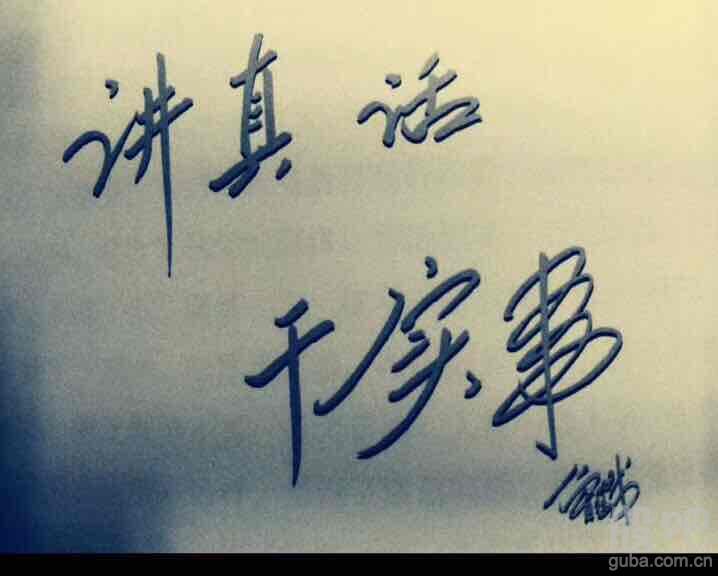 讲真话
干实事
guba.com.cn